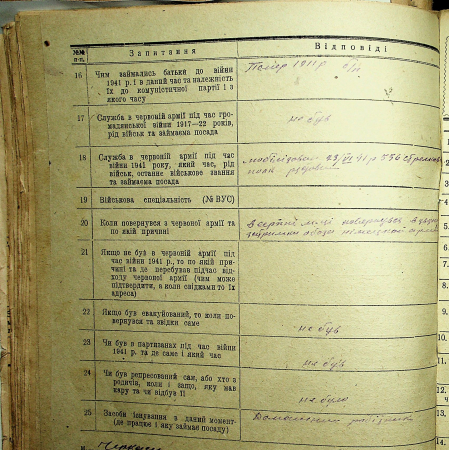 №№ п-п.
Запитання
Відповіді
16
Чим займались батьки до війни
1941 р. і в даний час та належність
їх до комуністичної партії і з
якого часу
Помер 1911 р
17
Служба в червоній армії під час гро-
мадянської війни 1917—22 років,
рід військ та займаєма посада
не був
18
Служба в червоній армії під час
війни 1941 року, який час, рід
військ, останнє військове звання
та займаєма посада
мобілізован 23/VI 41 р 556 стрілков
полк
19
Військова спеціальність (№ ВУС)
20
Коли повернувся з червоної армії та
по якій причині
В серпні місяці повернувся
німецької армії
21
Якщо не був в червоній армії під
час війни 1941 р., то по якій при-
чині та де перебував підчас від-
ходу червоної армії (чим може
підтвердити, а коли свідками то їх
адреса)
22
Якщо був евакуйований, то коли по-
вернувся та звідки саме
не був
23
Чи був в партизанах під час війни
1941 р. та де саме і який час
не був
24
Чи був репресований сам, або хто з
родичів, коли і защо, яку мав
кару та чи відбув її
не було
25
Засоби існування в даний момент
(де працює і яку займає посаду)
4.
5.
6.
7.
8.
9.
10.
11.
12.
13.
14.